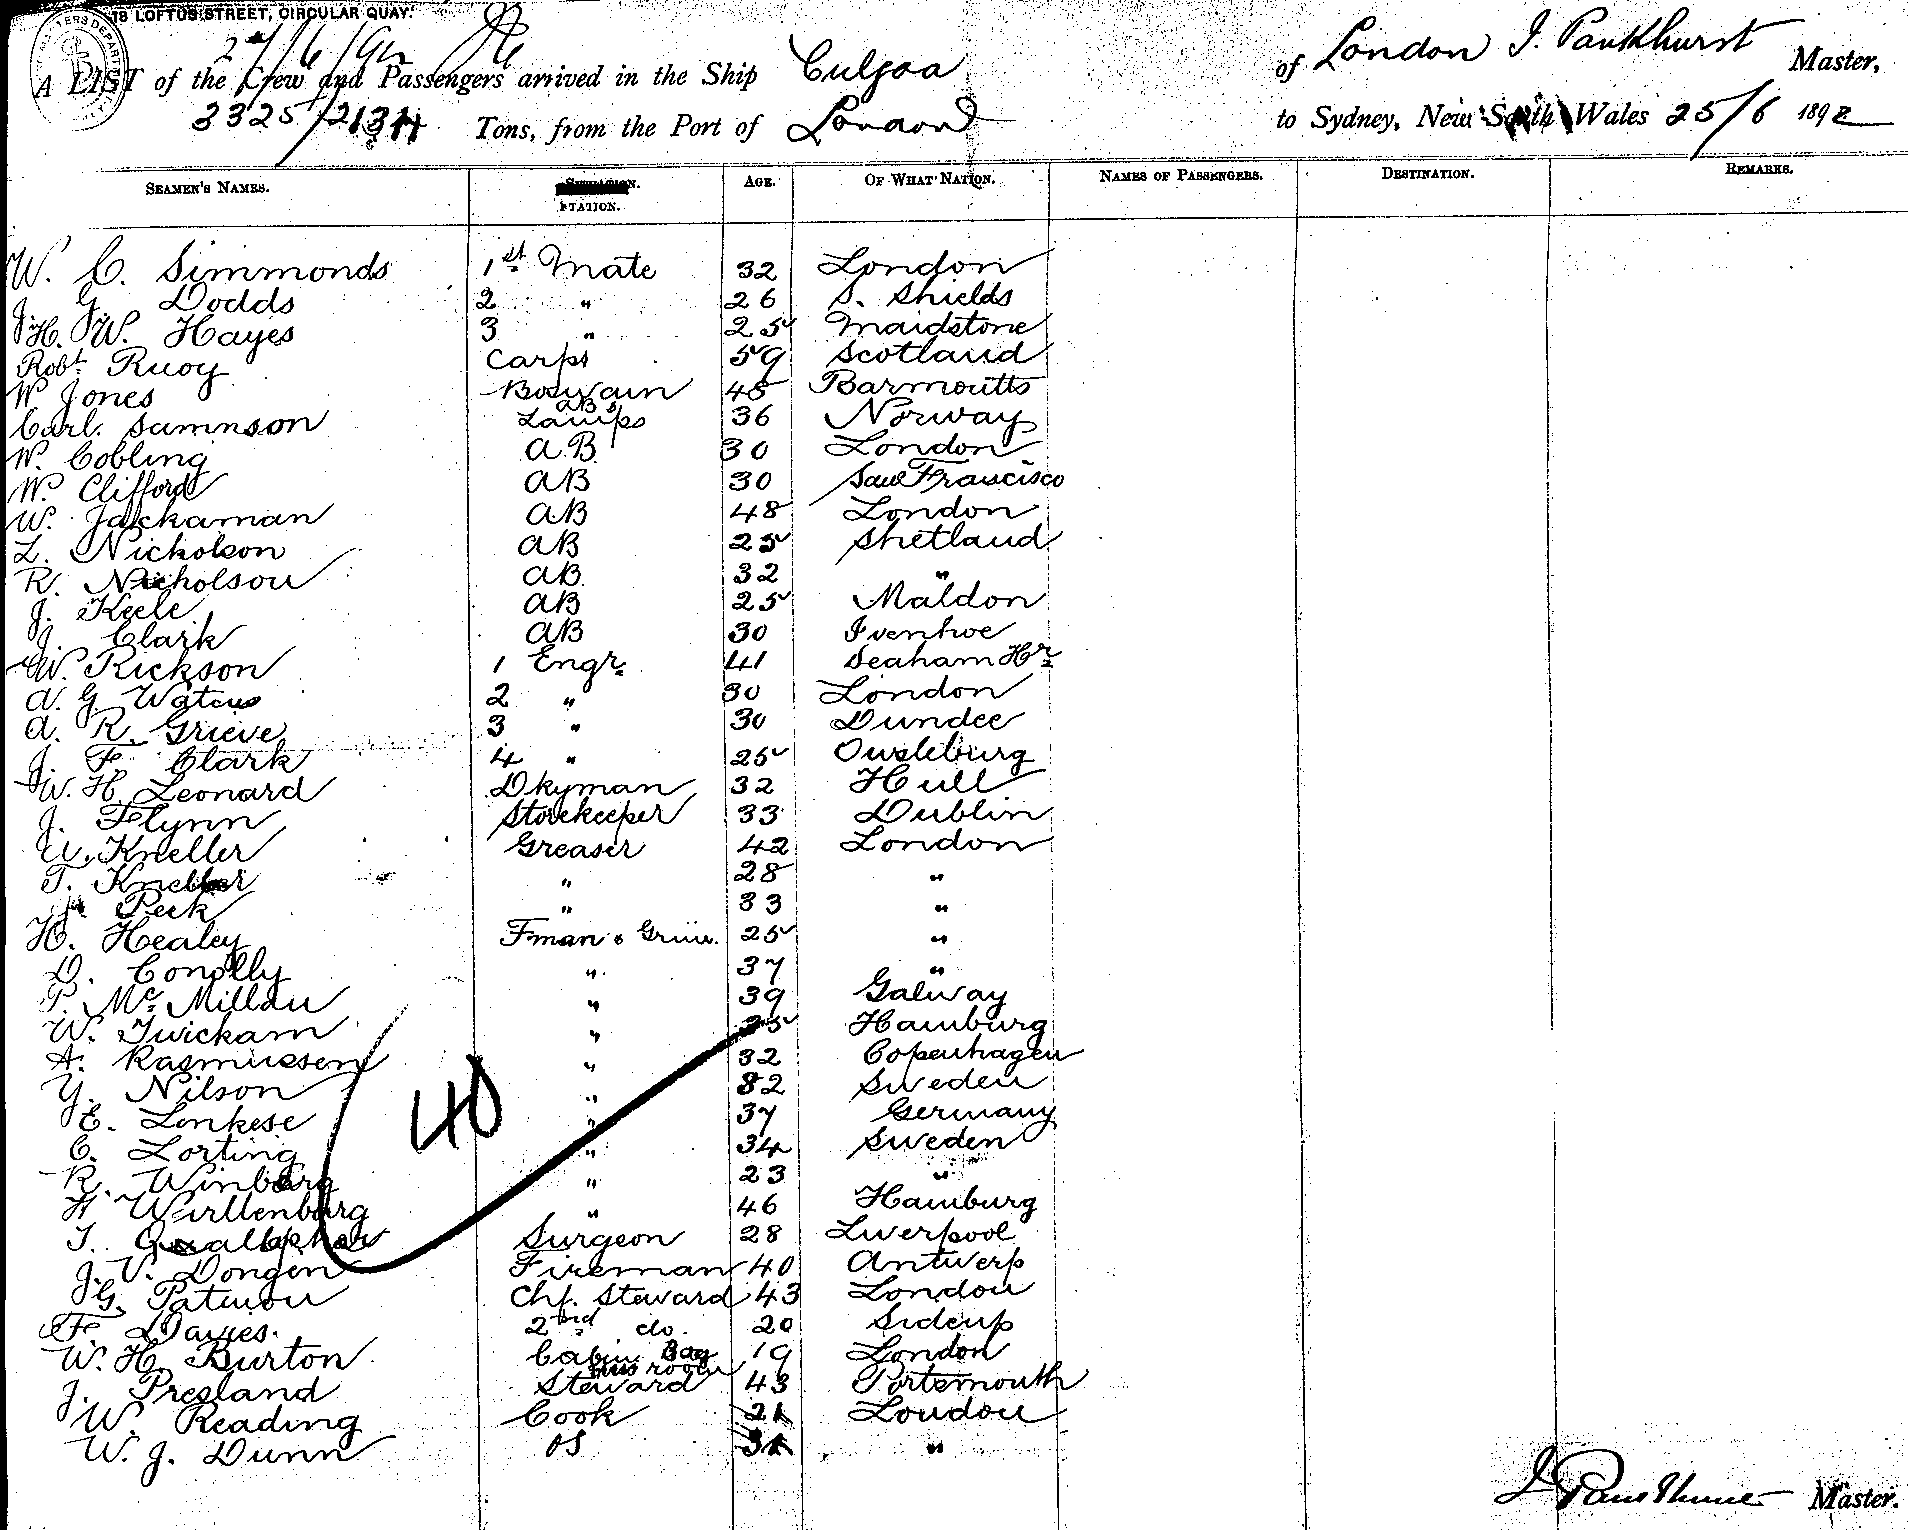 18 LOFTUS STREET, CIRCULAR QUAY.
A LIST of the Crew and Passengers arrived in the Ship Culgoa of London J. Pankhurst Master,
3325/2134 Tons, from the Port of London to Sydney, New South Wales 25/6 1892
SEAMEN'S NAMES. STATION. AGE. OF WHAT NATION. NAMES OF PASSENGERS. DESTINATION. REMARKS.
W. C. Simmonds 1st Mate 32 London
J. G. Dodds 2 " 26 S. Shields
H. W. Hayes 3 " 25 Maidstone
Robt Ruoy Carps 59 Scotland
W Jones Boswain 45 Barmouth
Carl. Samnson AB Lamps 36 Norway
W. Cobling A.B. 30 London
W. Clifford AB 30 San Francisco
W. Jackaman AB 48 London
L. Nicholson AB 25 Shetland
R. Nicholson AB 32 "
J. Keele AB 25 Maldon
J. Clark AB 30 Ivenhoe
W. Rickson 1 Engr. 41 Seaham Hr
A. G. Waters 2 " 30 London
A. R. Grieve 3 " 30 Dundee
J. F. Clark 4 " 25
W. H. Leonard Dkyman 32 Hull
J. Flynn Storekeeper 33 Dublin
W. Kneller Greaser 42 London
T. Kneller " 28 "
Peek " 33 "
H. Healey Fman & 25 "
D. Conolly " 37 "
P. Mc Millan " 39 Galway
W. Twickam " 25 Hamburg
A. Rasmussen " 32 Copenhagen
Y. Nilson " 32 Sweden
E. Lonkese " 37 Germany
C. Lorting " 34 Sweden
R. Winberg " 23 "
H Wurllenburg " 46 Hamburg
T. Surgeon 28 Liverpool
J. V. Dongen Fireman 40 Antwerp
G. Patmou Chf. Steward 43 London
F. Davies. 2nd do. 20 Sidcup
W. H. Burton Cabin Boy 19 London
J. Presland Mess room Steward 43 Portsmouth
W. Reading Cook 21 London
W. J. Dunn OS "
40
J Pankhurst Master.